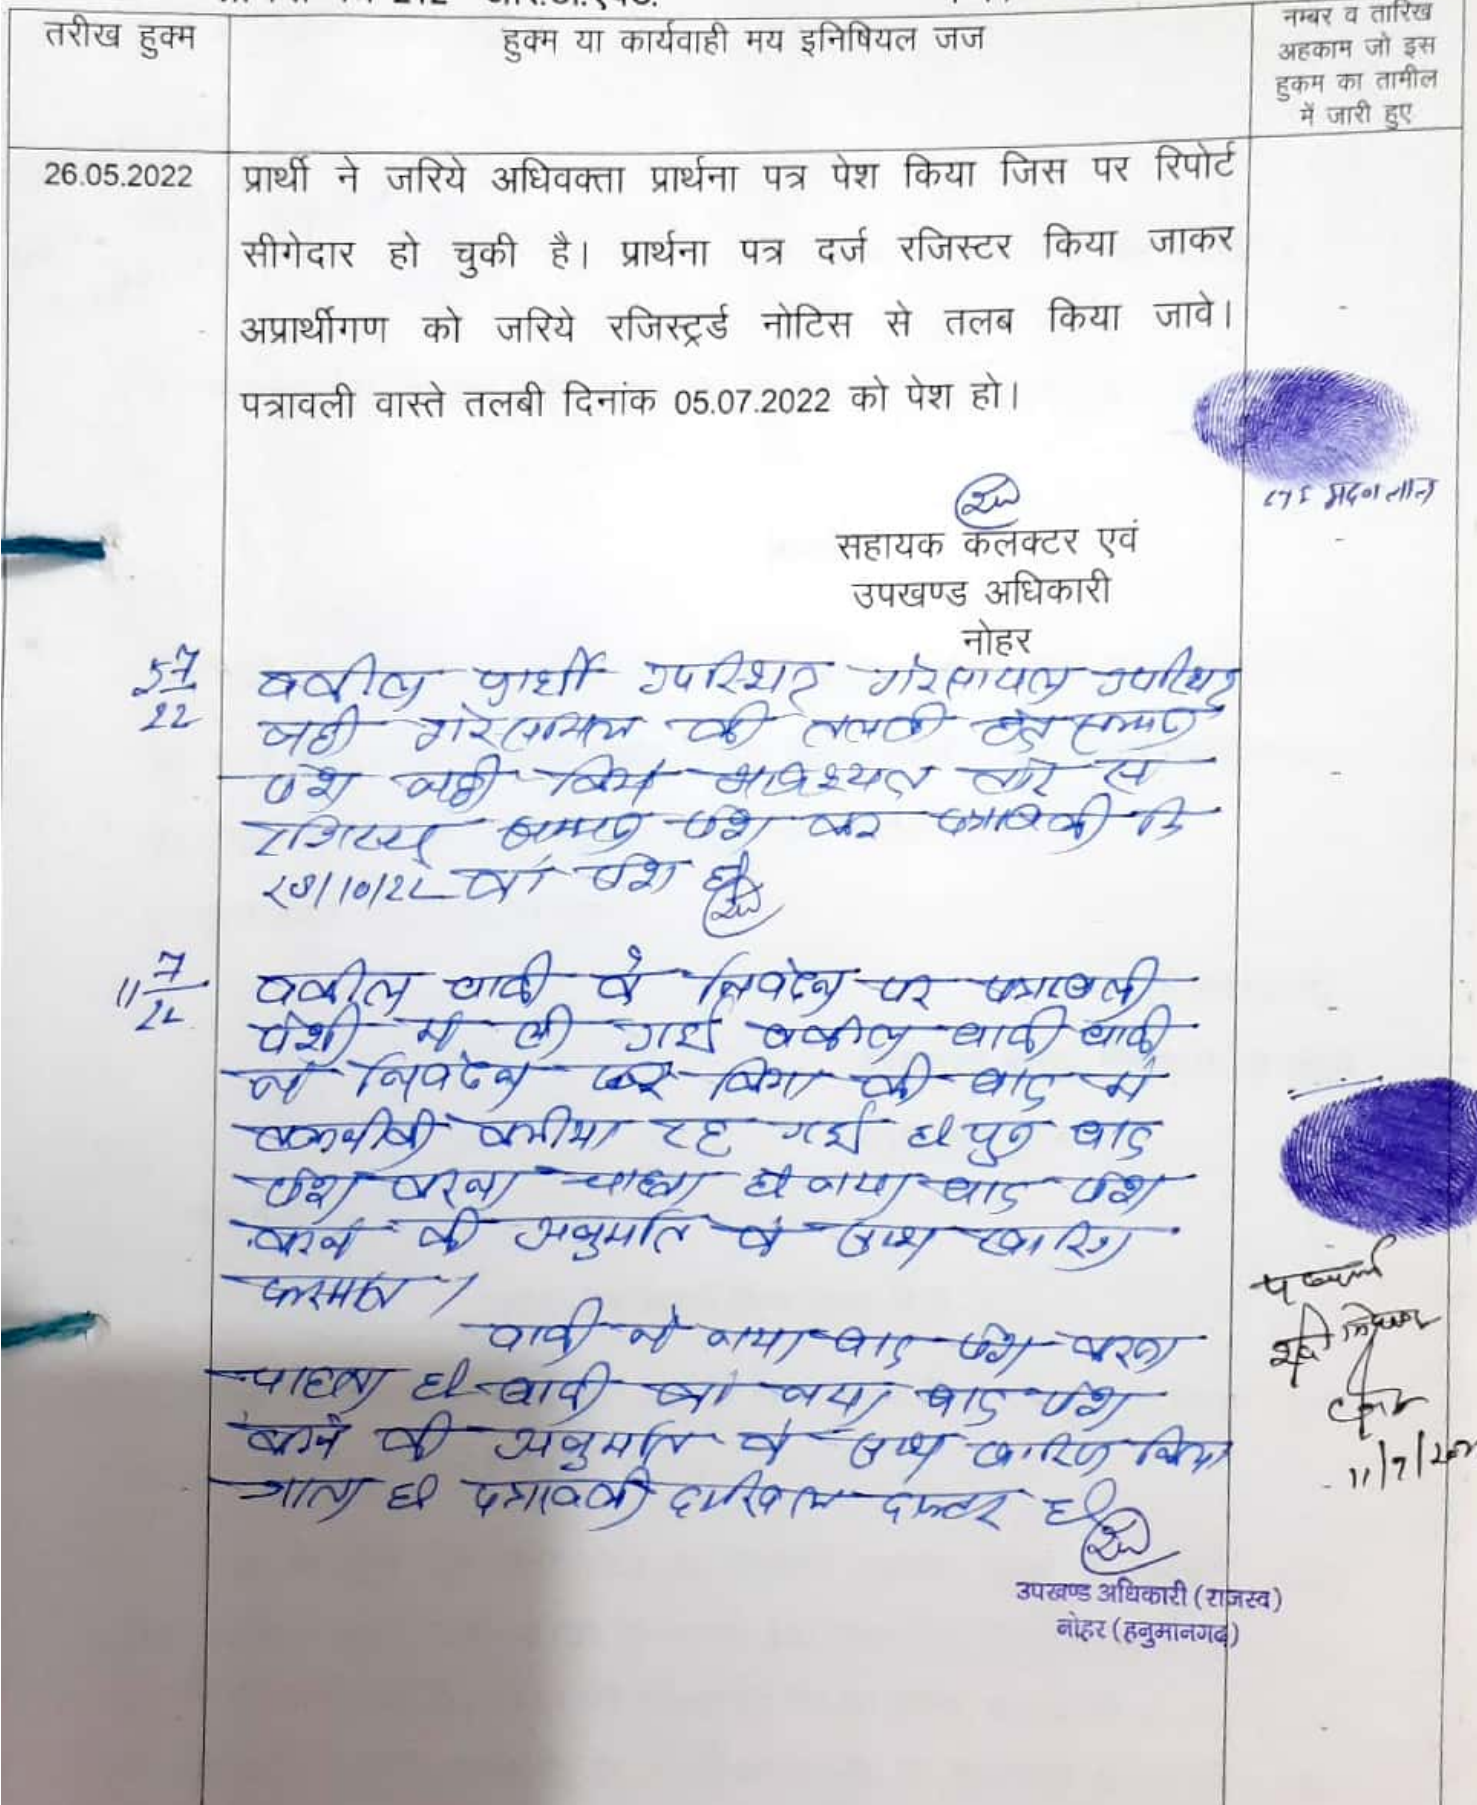 तरीख हुक्म
हुक्म या कार्यवाही मय इनिषियल जज
नम्बर व तारिख
अहकाम जो इस
हुकम का तामील
में जारी हुए
26.05.2022
प्रार्थी ने जरिये अधिवक्ता प्रार्थना पत्र पेश किया जिस पर रिपोर्ट
सीगेदार हो चुकी है। प्रार्थना पत्र दर्ज रजिस्टर किया जाकर
अप्रार्थीगण को जरिये रजिस्ट्रर्ड नोटिस से तलब किया जावे।
पत्रावली वास्ते तलबी दिनांक 05.07.2022 को पेश हो।
मदन लाल
सहायक कलक्टर एवं
उपखण्ड अधिकारी
नोहर
5/7
22
वकील प्रार्थी उपस्थित गैरसायल उपस्थित
नही गैरसायल की तलबी हेतु सम्मण
पेश नही किये आवश्यक तौर से
सम्मण पेश कर पत्रावली
10/22 को पेश हो
11/7
22
वकील वादी के निवेदन पर पत्रावली
पेशी में ली गई वकील वादी वादी
ने निवेदन किया की वाद में
तकनीकी कमीया रह गई है पुन वाद
पेश करना चाहता है नया वाद पेश
करने की अनुमति के साथ खारिज
फरमावे।
वादी ने नया वाद पेश करना
चाहता है वादी को नया वाद पेश
करने की अनुमति के साथ खारिज किया
जाता है पत्रावली दाखिल दफ्तर हो
11/7/202
उपखण्ड अधिकारी (राजस्व)
नोहर (हनुमानगढ़)